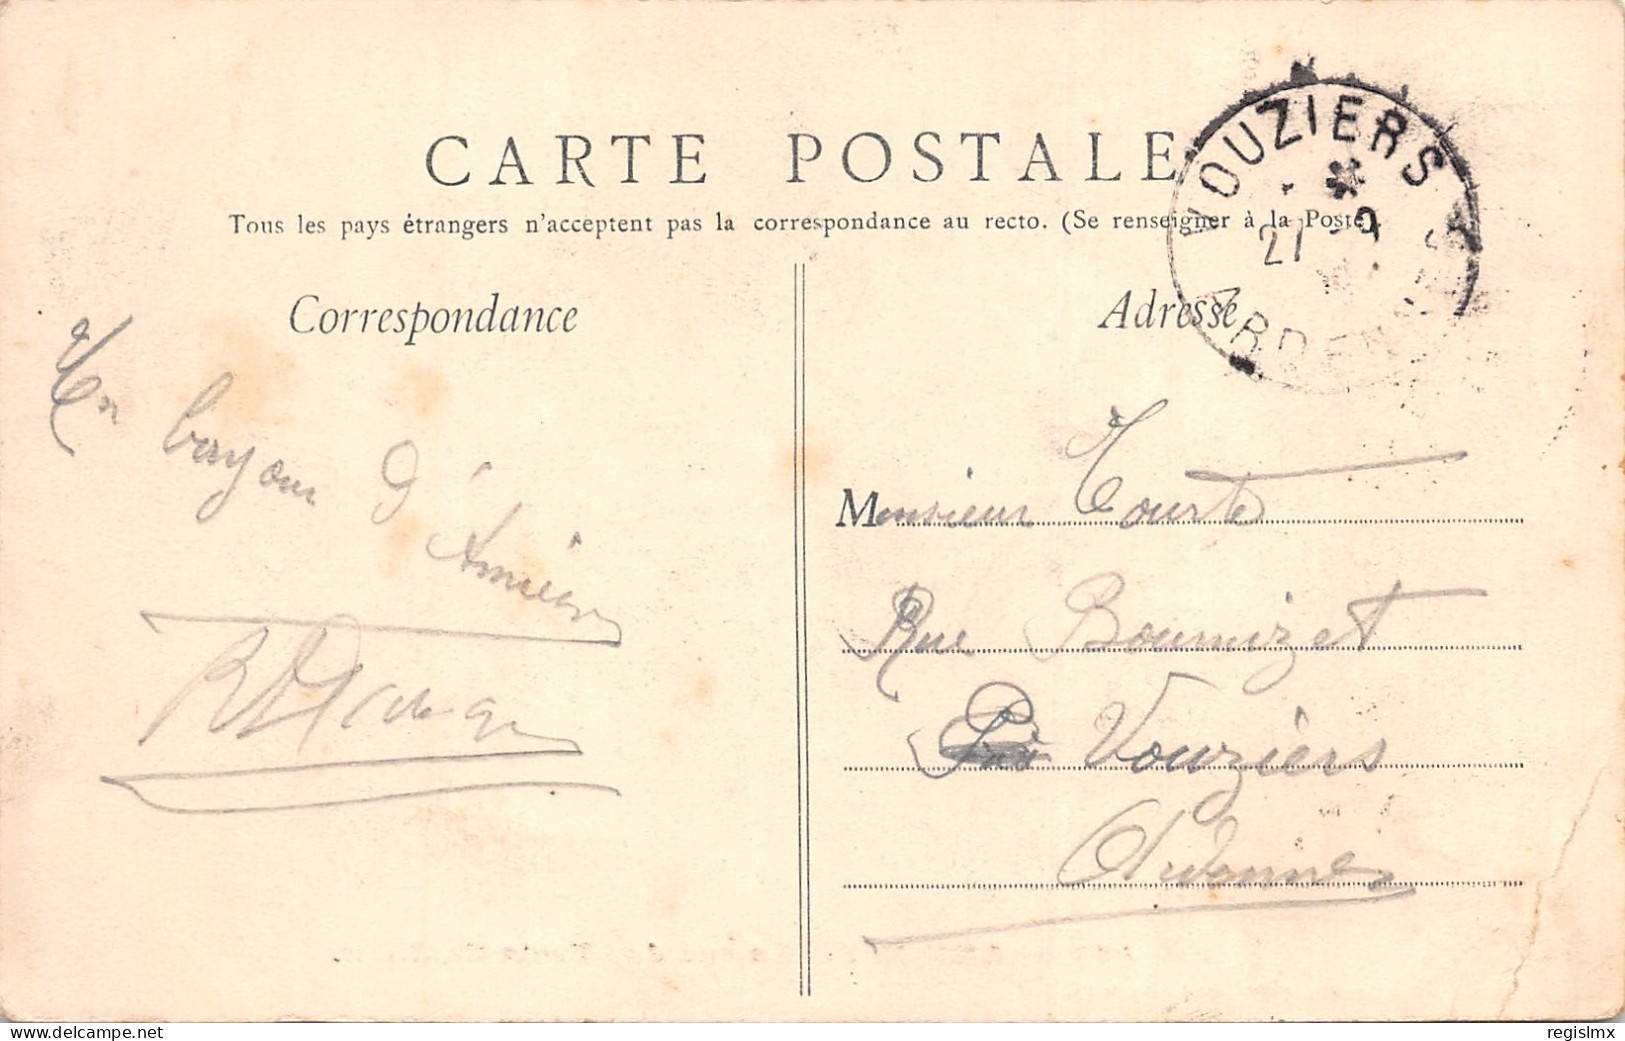 CARTE POSTALE
Tous les pays étrangers n'acceptent pas la correspondance au recto. (Se renseigner à la Poste)
VOUZIERS
21
ARDENNES
Correspondance
Adresse
Un bayour d'Amiens
Monsieur Tourte
Rue Bournizet
Vouziers
Ardennes
www.delcampe.net
regislmx